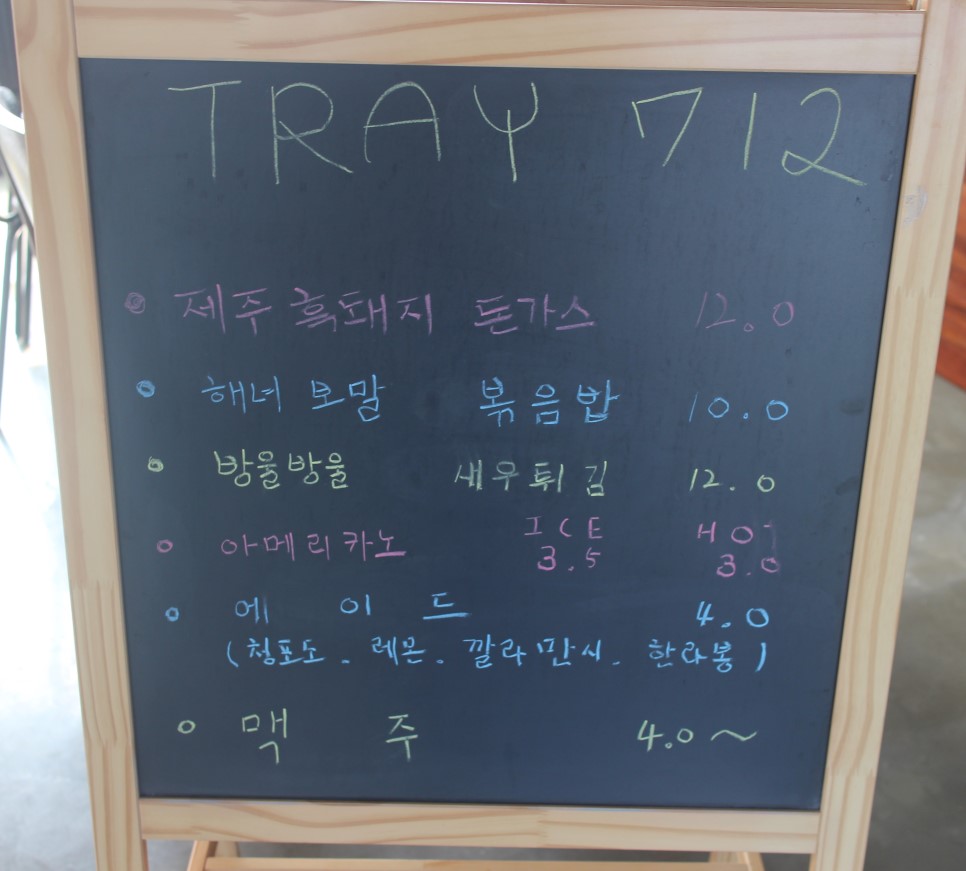 TRAY 712
제주 흑돼지 돈가스 12.0
해녀 보말 볶음밥 10.0
방울방울 새우튀김 12.0
아메리카노 ICE 3.5 HOT 3.0
에이드 4.0
(청포도. 레몬. 깔라만시. 한라봉)
맥주 4.0~